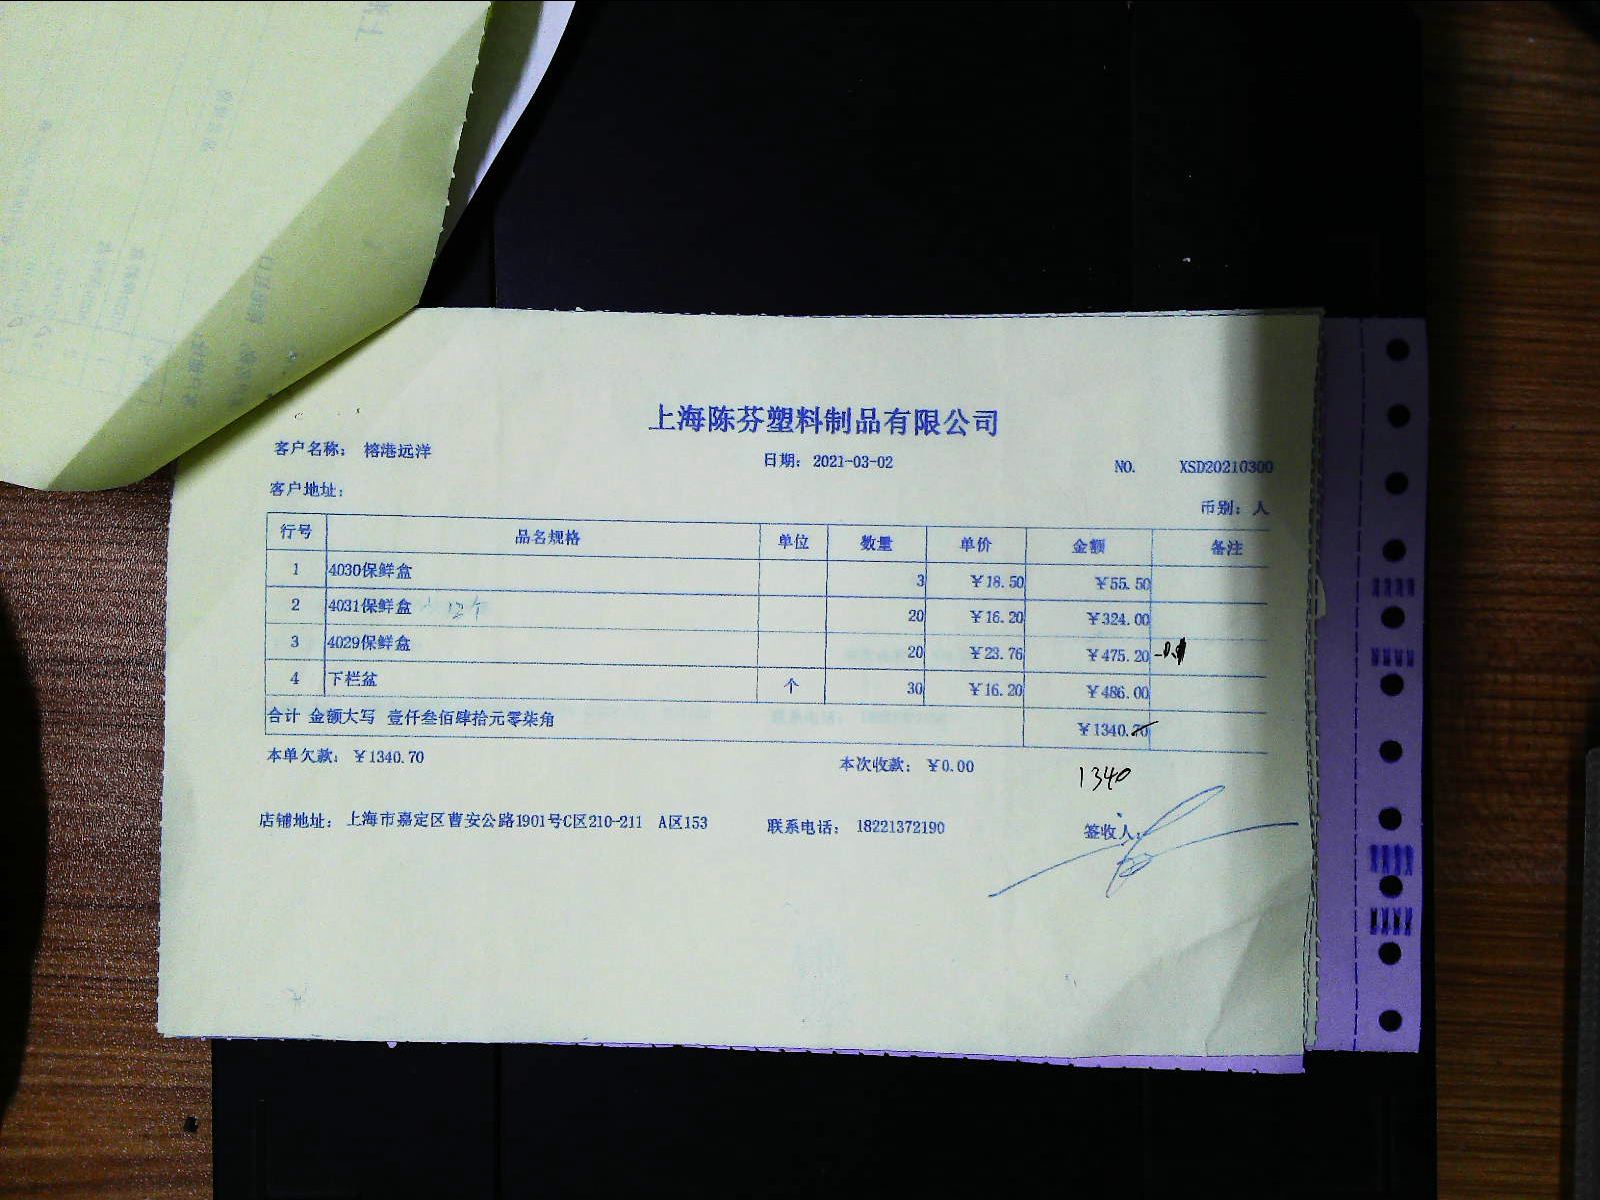 上海陈芬塑料制品有限公司
客户名称： 榕港远洋 日期： 2021-03-02 NO. XSD20210300
客户地址： 币别：人
行号 品名规格 单位 数量 单价 金额 备注
1 4030保鲜盒 3 ￥18.50 ￥55.50
2 4031保鲜盒 20 ￥16.20 ￥324.00
3 4029保鲜盒 20 ￥23.76 ￥475.20
4 下栏盆 个 30 ￥16.20 ￥486.00
合计 金额大写 壹仟叁佰肆拾元零柒角 ￥1340.70
本单欠款：￥1340.70 本次收款：￥0.00
1340
店铺地址： 上海市嘉定区曹安公路1901号C区210-211 A区153 联系电话： 18221372190 签收人：